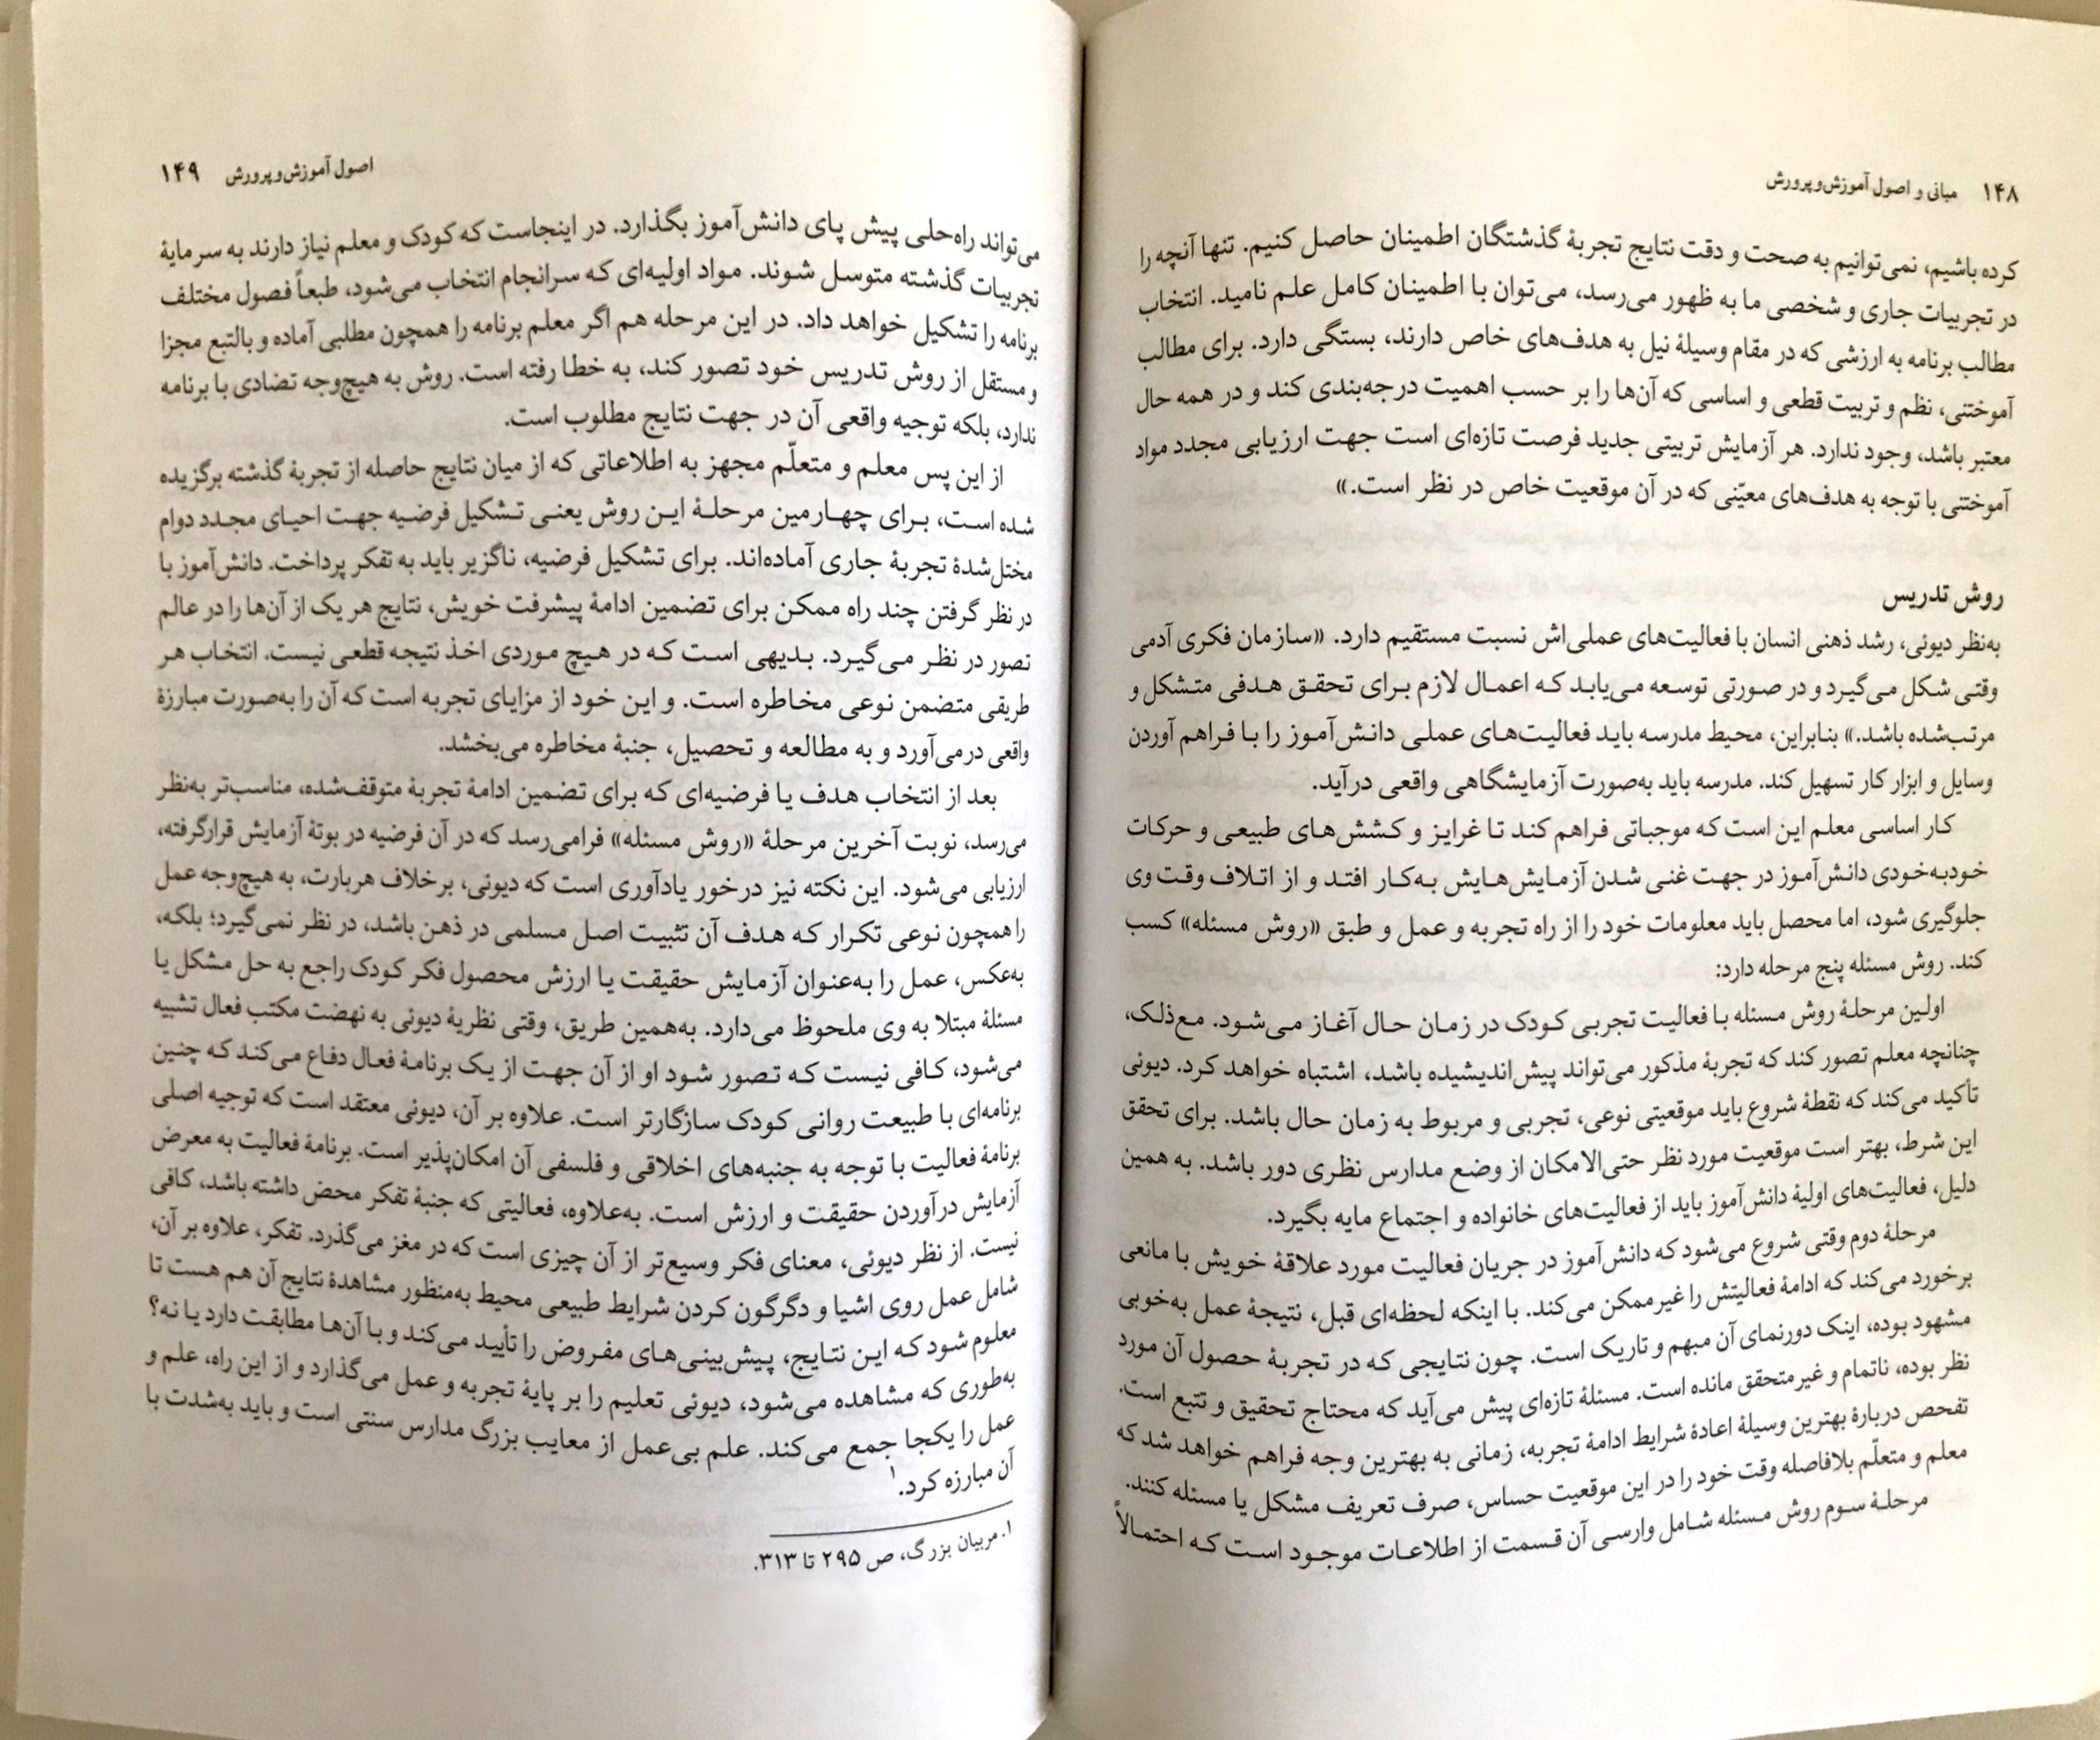 ۱۴۸ مبانی و اصول آموزش‌وپرورش
کرده باشیم، نمی‌توانیم به صحت و دقت نتایج تجربهٔ گذشتگان اطمینان حاصل کنیم. تنها آنچه را
در تجربیات جاری و شخصی ما به ظهور می‌رسد، می‌توان با اطمینان کامل علم نامید. انتخاب
مطالب برنامه به ارزشی که در مقام وسیلهٔ نیل به هدف‌های خاص دارند، بستگی دارد. برای مطالب
آموختنی، نظم و تربیت قطعی و اساسی که آن‌ها را بر حسب اهمیت درجه‌بندی کند و در همه حال
معتبر باشد، وجود ندارد. هر آزمایش تربیتی جدید فرصت تازه‌ای است جهت ارزیابی مجدد مواد
آموختنی با توجه به هدف‌های معیّنی که در آن موقعیت خاص در نظر است.»
روش تدریس
به‌نظر دیوئی، رشد ذهنی انسان با فعالیت‌های عملی‌اش نسبت مستقیم دارد. «سازمان فکری آدمی
وقتی شکل می‌گیرد و در صورتی توسعه می‌یابد که اعمال لازم برای تحقق هدفی متشکل و
مرتب‌شده باشد.» بنابراین، محیط مدرسه باید فعالیت‌های عملی دانش‌آموز را با فراهم آوردن
وسایل و ابزار کار تسهیل کند. مدرسه باید به‌صورت آزمایشگاهی واقعی درآید.
کار اساسی معلم این است که موجباتی فراهم کند تا غرایز و کشش‌های طبیعی و حرکات
خودبه‌خودی دانش‌آموز در جهت غنی شدن آزمایش‌هایش به‌کار افتد و از اتلاف وقت وی
جلوگیری شود، اما محصل باید معلومات خود را از راه تجربه و عمل و طبق «روش مسئله» کسب
کند. روش مسئله پنج مرحله دارد:
اولین مرحلهٔ روش مسئله با فعالیت تجربی کودک در زمان حال آغاز می‌شود. مع‌ذلک،
چنانچه معلم تصور کند که تجربهٔ مذکور می‌تواند پیش‌اندیشیده باشد، اشتباه خواهد کرد. دیوئی
تأکید می‌کند که نقطهٔ شروع باید موقعیتی نوعی، تجربی و مربوط به زمان حال باشد. برای تحقق
این شرط، بهتر است موقعیت مورد نظر حتی‌الامکان از وضع مدارس نظری دور باشد. به همین
دلیل، فعالیت‌های اولیهٔ دانش‌آموز باید از فعالیت‌های خانواده و اجتماع مایه بگیرد.
مرحلهٔ دوم وقتی شروع می‌شود که دانش‌آموز در جریان فعالیت مورد علاقهٔ خویش با مانعی
برخورد می‌کند که ادامهٔ فعالیتش را غیرممکن می‌کند. با اینکه لحظه‌ای قبل، نتیجهٔ عمل به‌خوبی
مشهود بوده، اینک دورنمای آن مبهم و تاریک است. چون نتایجی که در تجربهٔ حصول آن مورد
نظر بوده، ناتمام و غیرمتحقق مانده است. مسئلهٔ تازه‌ای پیش می‌آید که محتاج تحقیق و تتبع است.
تفحص دربارهٔ بهترین وسیلهٔ اعادهٔ شرایط ادامهٔ تجربه، زمانی به بهترین وجه فراهم خواهد شد که
معلم و متعلّم بلافاصله وقت خود را در این موقعیت حساس، صرف تعریف مشکل یا مسئله کنند.
مرحلهٔ سوم روش مسئله شامل وارسی آن قسمت از اطلاعات موجود است که احتمالاً
اصول آموزش‌وپرورش ۱۴۹
می‌تواند راه‌حلی پیش پای دانش‌آموز بگذارد. در اینجاست که کودک و معلم نیاز دارند به سرمایهٔ
تجربیات گذشته متوسل شوند. مواد اولیه‌ای که سرانجام انتخاب می‌شود، طبعاً فصول مختلف
برنامه را تشکیل خواهد داد. در این مرحله هم اگر معلم برنامه را همچون مطلبی آماده و بالتبع مجزا
و مستقل از روش تدریس خود تصور کند، به خطا رفته است. روش به هیچ‌وجه تضادی با برنامه
ندارد، بلکه توجیه واقعی آن در جهت نتایج مطلوب است.
از این پس معلم و متعلّم مجهز به اطلاعاتی که از میان نتایج حاصله از تجربهٔ گذشته برگزیده
شده است، برای چهارمین مرحلهٔ این روش یعنی تشکیل فرضیه جهت احیای مجدد دوام
مختل‌شدهٔ تجربهٔ جاری آماده‌اند. برای تشکیل فرضیه، ناگزیر باید به تفکر پرداخت. دانش‌آموز با
در نظر گرفتن چند راه ممکن برای تضمین ادامهٔ پیشرفت خویش، نتایج هر یک از آن‌ها را در عالم
تصور در نظر می‌گیرد. بدیهی است که در هیچ موردی اخذ نتیجه قطعی نیست. انتخاب هر
طریقی متضمن نوعی مخاطره است. و این خود از مزایای تجربه است که آن را به‌صورت مبارزهٔ
واقعی درمی‌آورد و به مطالعه و تحصیل، جنبهٔ مخاطره می‌بخشد.
بعد از انتخاب هدف یا فرضیه‌ای که برای تضمین ادامهٔ تجربهٔ متوقف‌شده، مناسب‌تر به‌نظر
می‌رسد، نوبت آخرین مرحلهٔ «روش مسئله» فرامی‌رسد که در آن فرضیه در بوتهٔ آزمایش قرارگرفته،
ارزیابی می‌شود. این نکته نیز درخور یادآوری است که دیوئی، برخلاف هربارت، به هیچ‌وجه عمل
را همچون نوعی تکرار که هدف آن تثبیت اصل مسلمی در ذهن باشد، در نظر نمی‌گیرد؛ بلکه،
به‌عکس، عمل را به‌عنوان آزمایش حقیقت یا ارزش محصول فکر کودک راجع به حل مشکل یا
مسئلهٔ مبتلا به وی ملحوظ می‌دارد. به‌همین طریق، وقتی نظریهٔ دیوئی به نهضت مکتب فعال تشبیه
می‌شود، کافی نیست که تصور شود او از آن جهت از یک برنامهٔ فعال دفاع می‌کند که چنین
برنامه‌ای با طبیعت روانی کودک سازگارتر است. علاوه بر آن، دیوئی معتقد است که توجیه اصلی
برنامهٔ فعالیت با توجه به جنبه‌های اخلاقی و فلسفی آن امکان‌پذیر است. برنامهٔ فعالیت به معرض
آزمایش درآوردن حقیقت و ارزش است. به‌علاوه، فعالیتی که جنبهٔ تفکر محض داشته باشد، کافی
نیست. از نظر دیوئی، معنای فکر وسیع‌تر از آن چیزی است که در مغز می‌گذرد. تفکر، علاوه بر آن،
شامل عمل روی اشیا و دگرگون کردن شرایط طبیعی محیط به‌منظور مشاهدهٔ نتایج آن هم هست تا
معلوم شود که این نتایج، پیش‌بینی‌های مفروض را تأیید می‌کند و با آن‌ها مطابقت دارد یا نه؟
به‌طوری که مشاهده می‌شود، دیوئی تعلیم را بر پایهٔ تجربه و عمل می‌گذارد و از این راه، علم و
عمل را یکجا جمع می‌کند. علم بی‌عمل از معایب بزرگ مدارس سنتی است و باید به‌شدت با
آن مبارزه کرد.۱
۱. مربیان بزرگ، ص ۲۹۵ تا ۳۱۳.